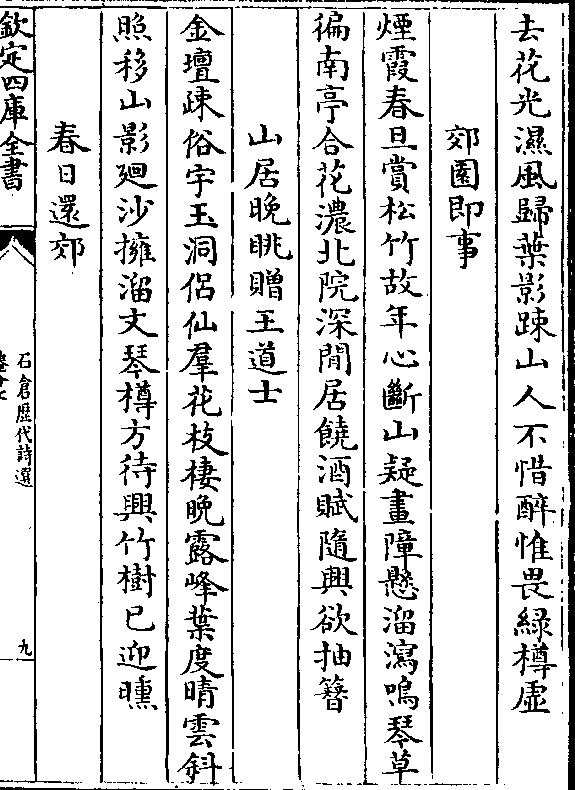 去花光濕風歸葉影踈山人不惜醉惟畏綠樽虛
郊園即事
煙霞春旦賞松竹故年心斷山疑畫障懸溜瀉鳴琴草
徧南亭合花濃北院深閒居饒酒賦隨興欲抽簪
山居晚眺贈王道士
金壇疎俗宇玉洞侶仙羣花枝棲晚露峰葉度晴雲斜
照移山影廻沙擁溜文琴樽方待興竹樹已迎曛
春日還郊
欽定四庫全書
石倉歷代詩選
九